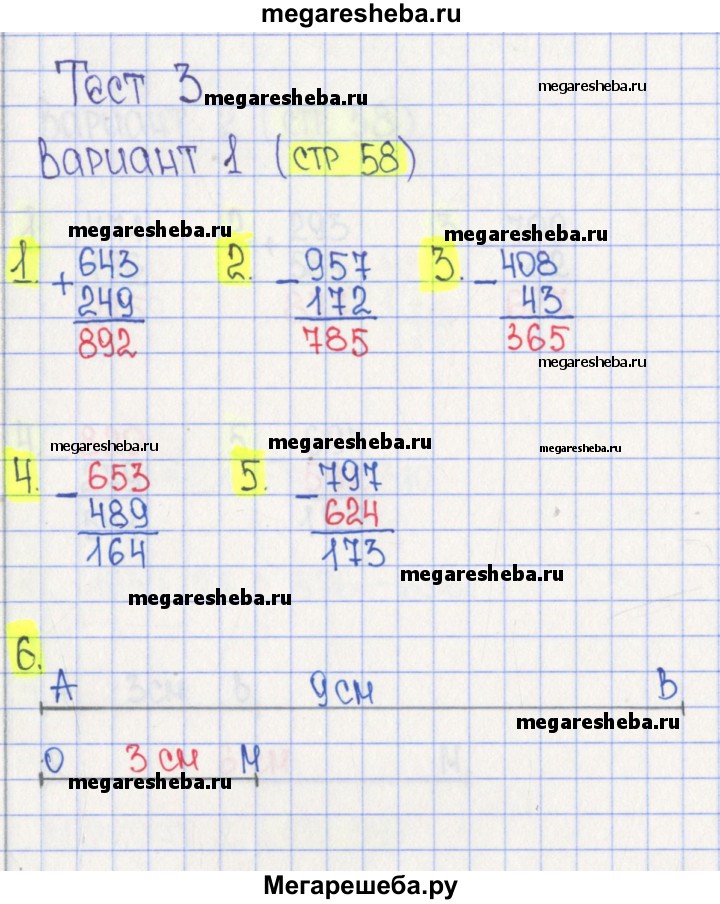 megaresheba.ru
Тест 3
megaresheba.ru
megaresheba.ru
Вариант 1 (стр 58)
megaresheba.ru
megaresheba.ru
1. + 643 2. - 957 3. - 408
249 172 43
892 785 365
megaresheba.ru
megaresheba.ru megaresheba.ru megaresheba.ru
4. - 653 5. - 797
489 624
164 173
megaresheba.ru
megaresheba.ru
6.
А 9 см В
megaresheba.ru
О 3 см М
megaresheba.ru
Мегарешеба.ру